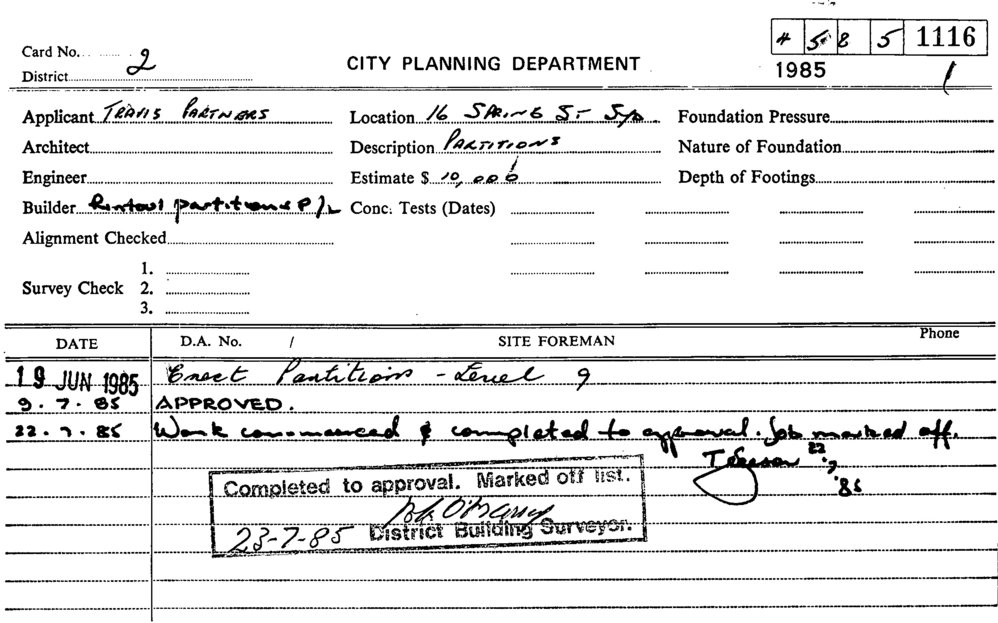 4 5 8 5 1116
Card No. 2
CITY PLANNING DEPARTMENT
1985
District
Applicant TRAVIS PARTNERS Location 16 SPRING ST SYD. Foundation Pressure
Architect Description PARTITIONS Nature of Foundation
Engineer Estimate $ 10,000 Depth of Footings
Builder Rintoul partitions P/L Conc. Tests (Dates)
Alignment Checked
1.
Survey Check 2.
3.
DATE D.A. No. / SITE FOREMAN Phone
19 JUN 1985 Erect Partitions - Level 9
9.7.85 APPROVED.
22.7.85 Work commenced & completed to approval. Job marked off.
22.7.85
Completed to approval. Marked off list.
23-7-85 District Building Surveyor.